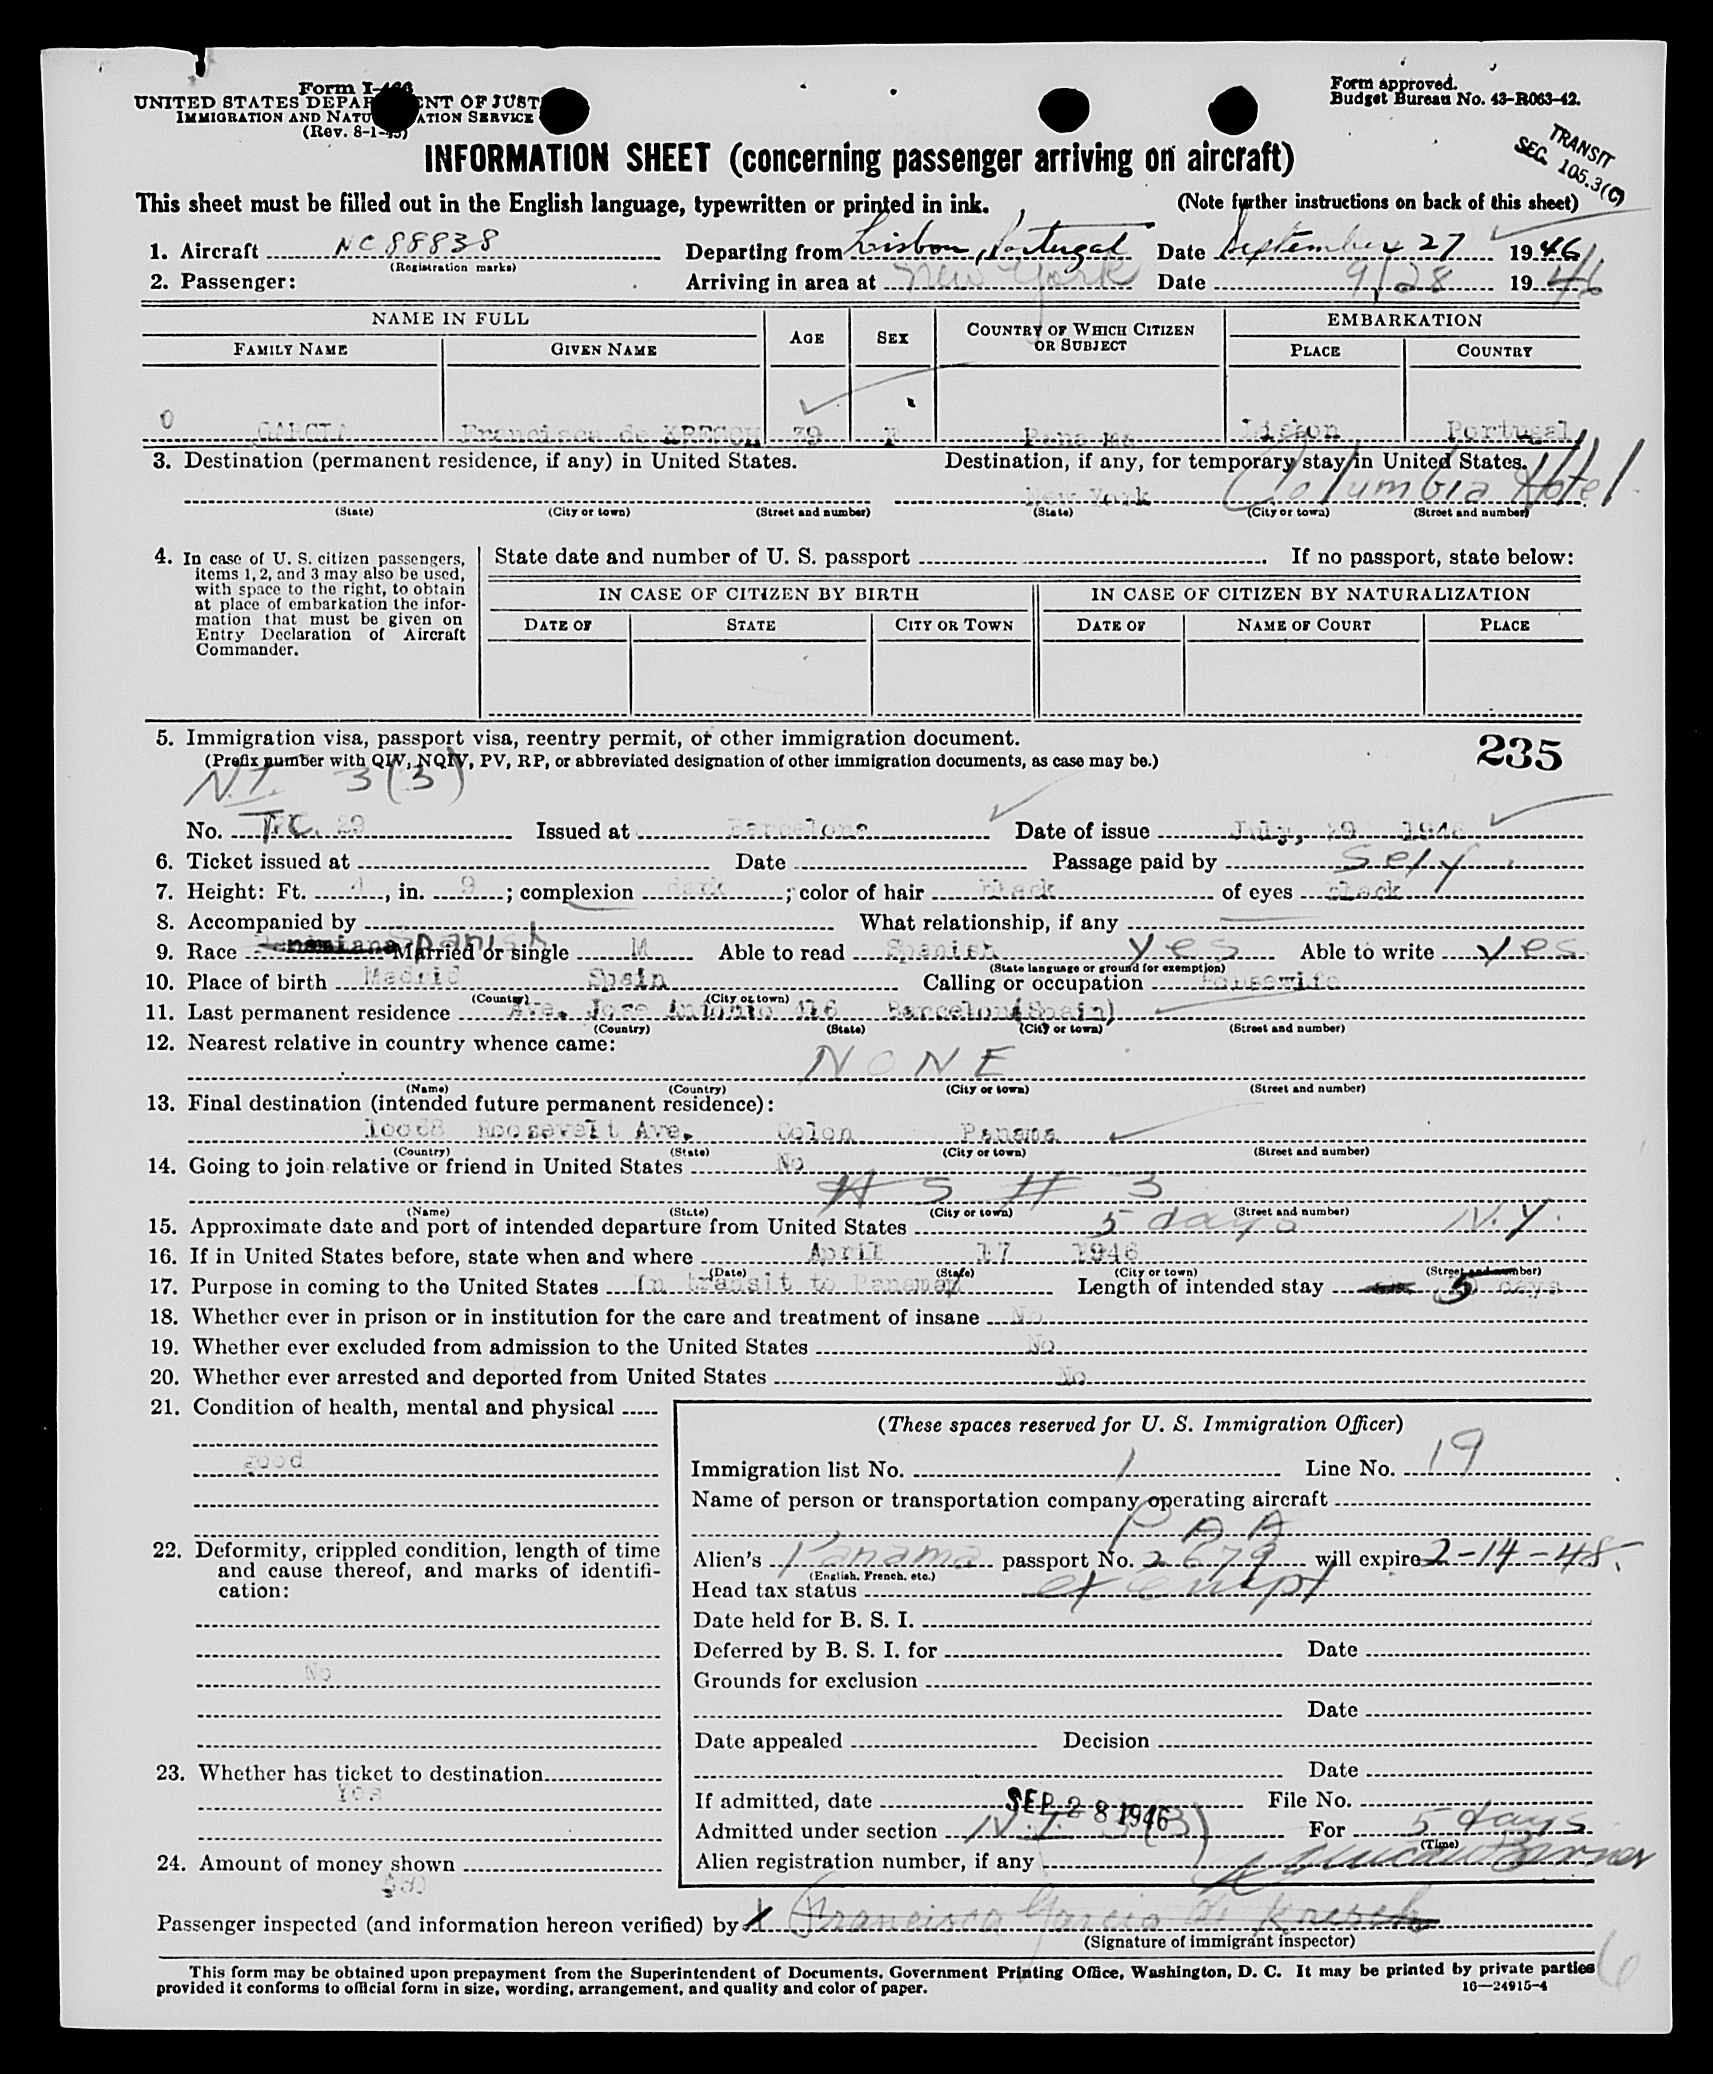 Form I-466
UNITED STATES DEPARTMENT OF JUSTICE
IMMIGRATION AND NATURALIZATION SERVICE
(Rev. 8-1-45)
Form approved.
Budget Bureau No. 43-R063-42.
TRANSIT
SEC. 105.3(C)
INFORMATION SHEET (concerning passenger arriving on aircraft)
This sheet must be filled out in the English language, typewritten or printed in ink. (Note further instructions on back of this sheet)
1. Aircraft NC 88838 Departing from Lisbon, Portugal Date September 27 1946
(Registration marks)
2. Passenger: Arriving in area at New York Date 9/28 1946
NAME IN FULL AGE SEX COUNTRY OF WHICH CITIZEN OR SUBJECT EMBARKATION
FAMILY NAME GIVEN NAME PLACE COUNTRY
0 GARCIA Francisca de KRESCH 39 F Panama Lisbon Portugal
3. Destination (permanent residence, if any) in United States. Destination, if any, for temporary stay in United States.
New York Columbia Hotel
(State) (City or town) (Street and number) (State) (City or town) (Street and number)
4. In case of U. S. citizen passengers, items 1, 2, and 3 may also be used, with space to the right, to obtain at place of embarkation the information that must be given on Entry Declaration of Aircraft Commander.
State date and number of U. S. passport If no passport, state below:
IN CASE OF CITIZEN BY BIRTH IN CASE OF CITIZEN BY NATURALIZATION
DATE OF STATE CITY OR TOWN DATE OF NAME OF COURT PLACE
5. Immigration visa, passport visa, reentry permit, or other immigration document. 235
(Prefix number with QIV, NQIV, PV, RP, or abbreviated designation of other immigration documents, as case may be.)
N.I. 3(3)
No. T.C. 29 Issued at Barcelona Date of issue July, 29 1946
6. Ticket issued at Date Passage paid by Self
7. Height: Ft. 4, in. 9; complexion dark; color of hair black of eyes black
8. Accompanied by What relationship, if any
9. Race Spanish Married or single M Able to read Spanish yes Able to write yes
(State language or ground for exemption)
10. Place of birth Madrid Spain Calling or occupation Housewife
(Country) (City or town)
11. Last permanent residence Ave. Jose Antonio 416 Barcelona (Spain)
(Country) (State) (City or town) (Street and number)
12. Nearest relative in country whence came:
NONE
(Name) (Country) (City or town) (Street and number)
13. Final destination (intended future permanent residence):
Roosevelt Ave. Colon Panama
(Country) (State) (City or town) (Street and number)
14. Going to join relative or friend in United States No
# 3
(Name) (State) (City or town) (Street and number)
15. Approximate date and port of intended departure from United States 5 days N.Y.
16. If in United States before, state when and where April 17 1946
(Date) (State) (City or town) (Street and number)
17. Purpose in coming to the United States In transit to Panama Length of intended stay 5 days
18. Whether ever in prison or in institution for the care and treatment of insane No
19. Whether ever excluded from admission to the United States No
20. Whether ever arrested and deported from United States No
21. Condition of health, mental and physical
good
22. Deformity, crippled condition, length of time and cause thereof, and marks of identification:
No
23. Whether has ticket to destination
Yes
24. Amount of money shown
(These spaces reserved for U. S. Immigration Officer)
Immigration list No. 1 Line No. 19
Name of person or transportation company operating aircraft
P A A
Alien's Panama passport No. 2679 will expire 2-14-48.
(English, French, etc.)
Head tax status exempt
Date held for B. S. I.
Deferred by B. S. I. for Date
Grounds for exclusion
Date
Date appealed Decision
Date
If admitted, date SEP 28 1946 File No.
Admitted under section N.I. 3(3) For 5 days
(Time)
Alien registration number, if any
Passenger inspected (and information hereon verified) by X Francisca Garcia de Kresch
(Signature of immigrant inspector)
6
This form may be obtained upon prepayment from the Superintendent of Documents, Government Printing Office, Washington, D. C. It may be printed by private parties
provided it conforms to official form in size, wording, arrangement, and quality and color of paper. 16—24915-4